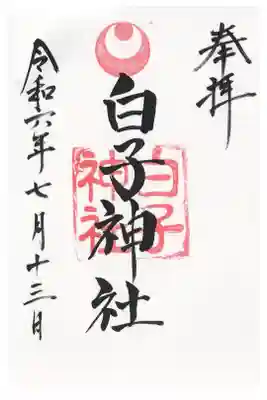 奉拝
白子神社
白子神社
令和六年七月十三日